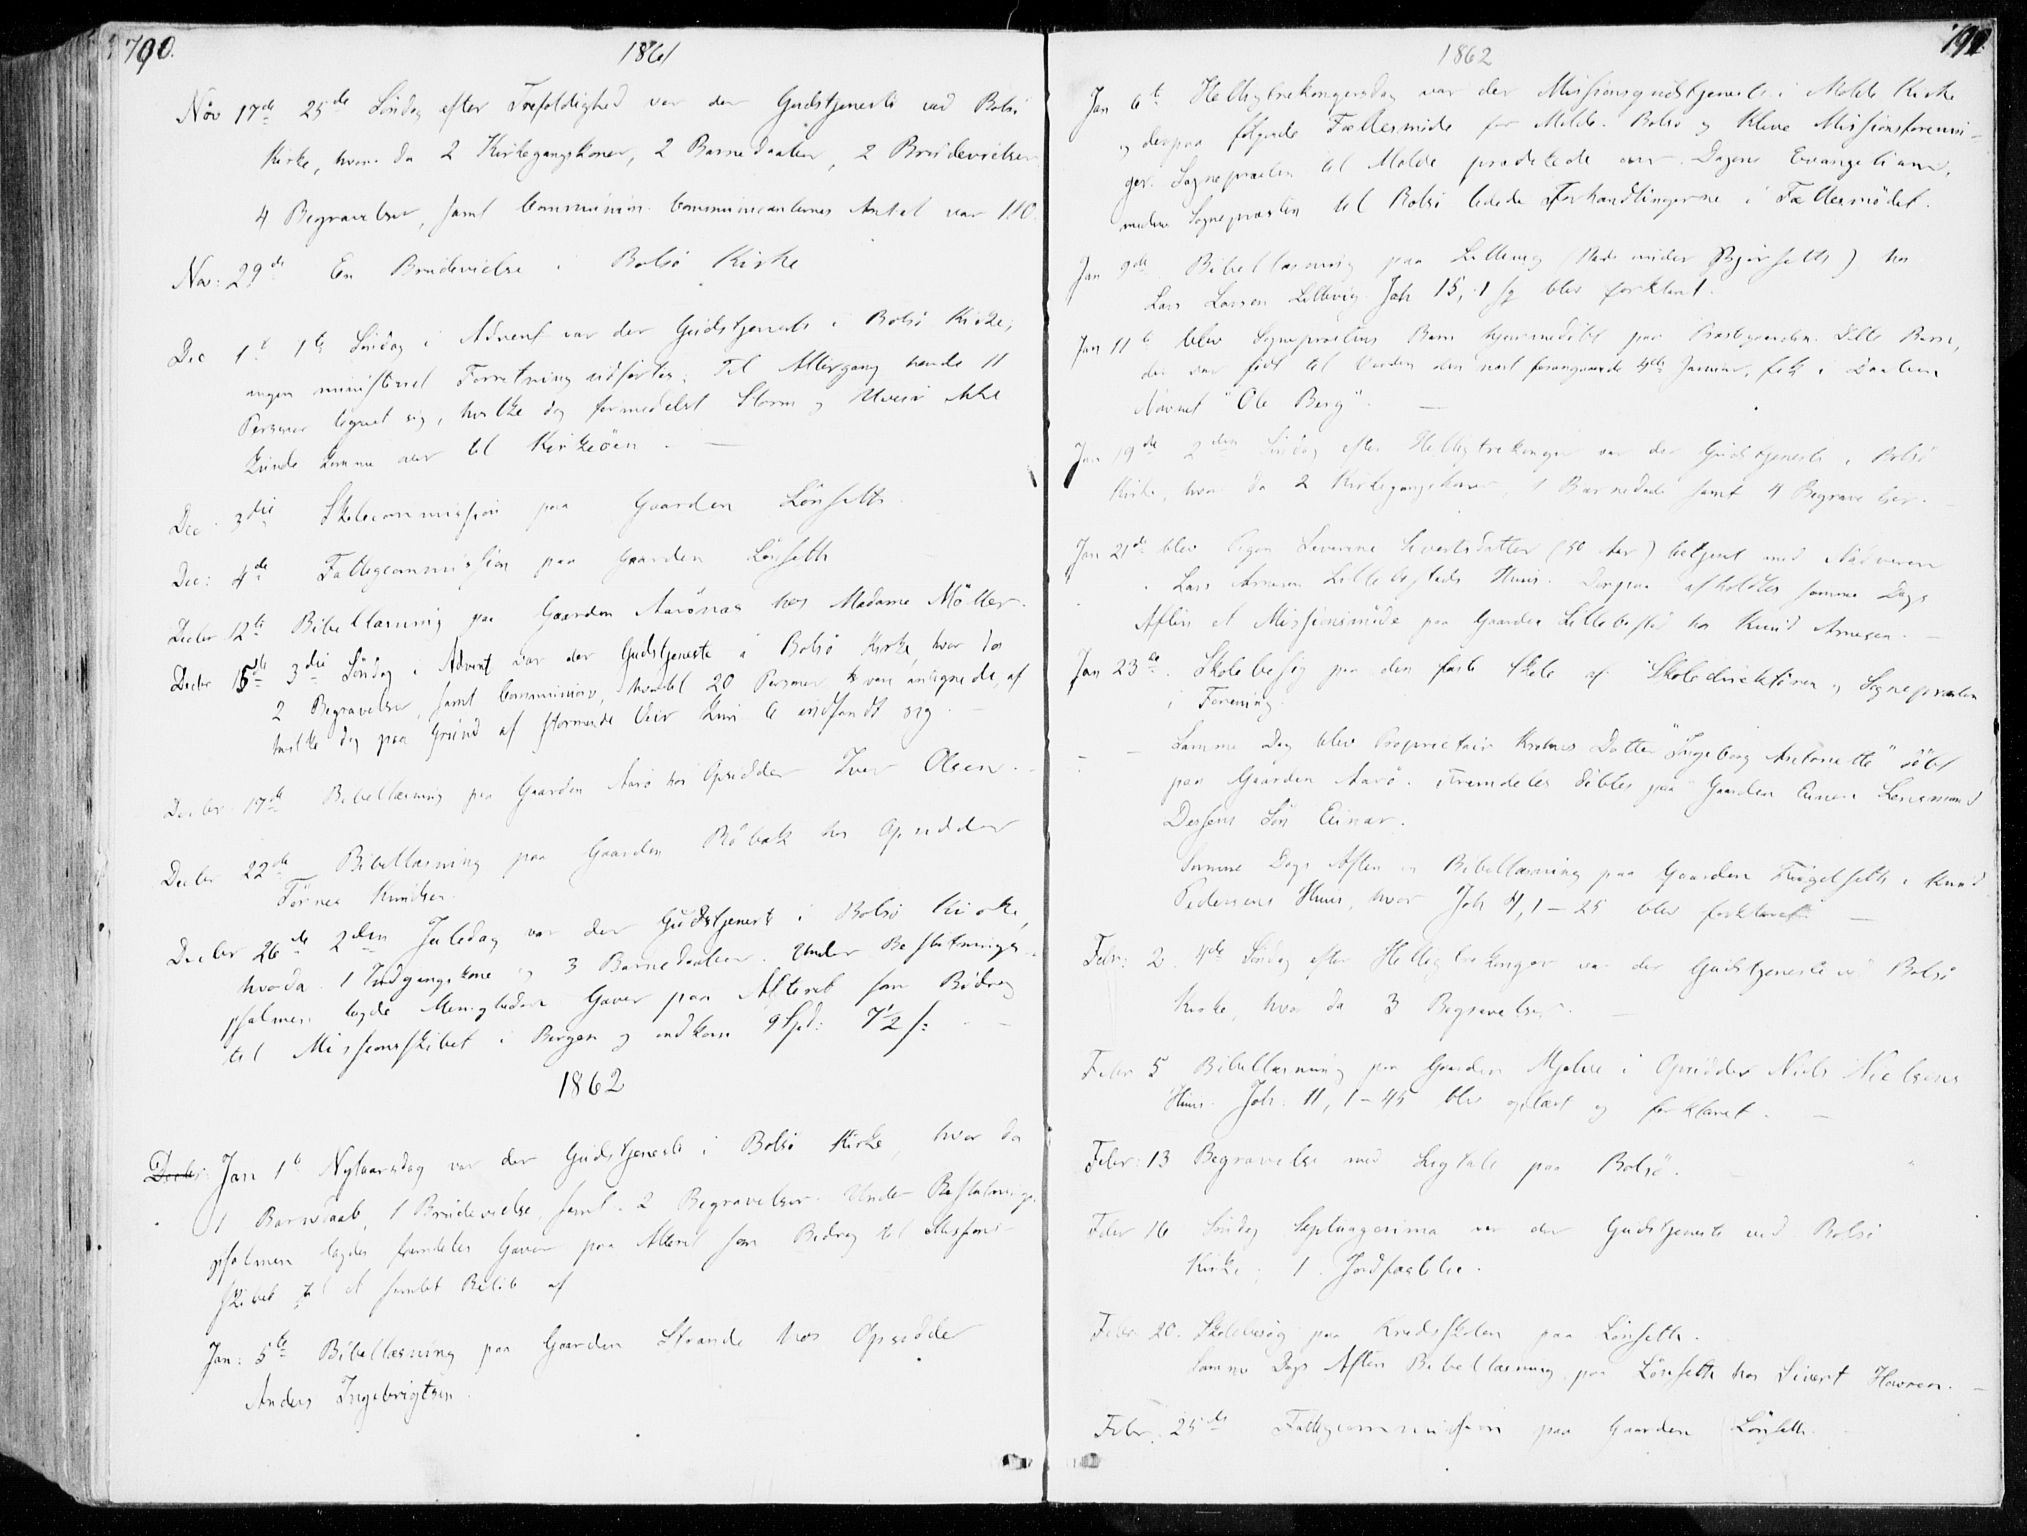 790.
1861
Nov 17de 25de Söndag efter Trefoldighed var der Gudstjeneste ved Bolsö
Kirke, hvor da 2 Kirkegangskoner, 2 Barnedaaber, 2 Brudevielser
4 Begravelser, samt Communion. Communicanternes Antal var 110.
Nov: 29de En Brudevielse i Bolsö Kirke
Dec 1te 1te Söndag i Advent var der Gudstjeneste i Bolsö Kirke;
ingen ministeriel Forretning udförtes. Til Altergang havde 11
Personer tegnet sig, hvilke dog formedelst Storm og Uveir ikke
kunde komme over til Kirkeöen. —
Dec: 3die Skolecommission paa Gaarden Lönseth.
Dec: 4de Fattigcommission paa Gaarden Lönseth
Decbr 12te Bibellæsning paa Gaarden Aarönæs hos Madame Möller.
Decbr 15de 3die Söndag i Advent var der Gudstjeneste i Bolsö Kirke, hvor da
2 Begravelser, samt Communion, hvortil 20 Personer vare antegnede, af
hvilke dog paa Grund af stormende Veir kun 6 indfandt sig. —
Decbr. 17de Bibellæsning paa Gaarden Aarö hos Opsidder Iver Olsen. —
Decbr 22de Bibellæsning paa Gaarden Röbæk hos Opsidder
Törnes Knudsen.
Decbr 26de 2den Juledag var der Gudstjeneste i Bolsö Kirke,
hvor da 1 Indgangskone og 3 Barnedaaber. Under Beslutnings-
psalmen lagde Menigheden Gaver paa Alteret som Bidrag
til Missionsskibet i Bergen og indkom 9 Spd: 7½ s: —
1862
Decbr: Jan 1te Nytaarsdag var der Gudstjeneste i Bolsö Kirke, hvor da
1 Barnedaab, 1 Brudevielse, samt 2 Begravelser. Under Beslutnings-
psalmen lagdes fremdeles Gaver paa Alteret som Bidrag til Missions-
skibet til et samlet Belöb af
Jan: 5te Bibellæsning paa Gaarden Strande hos Opsidder
Anders Ingebrigtsen.
1862
Jan 6te Helligtrekongersdag var der Missionsgudstjeneste i Molde Kirke
og derpaa fölgende Fællesmöde for Molde, Bolsö og Kleve Missionsforenin-
ger. Sognepræsten til Molde prædikede over Dagens Evangelium,
medens Sognepræsten til Bolsö ledede Forhandlingerne i Fællesmödet.
Jan 9de Bibellæsning paa Lillevig (Plads under Bjørseth) hos
Lars Larsen Lillevig. Joh 15, 1 fg blev forklaret.
Jan 11te blev Sognepræstens Barn hjemmedöbt paa Præstegaarden. Dette Barn,
der var födt til Verden den næst foregaaende 4de Januar, fik i Daaben
Navnet "Ole Berg". —
Jan 19de 2den Söndag efter Helligtrekonger var der Gudstjeneste i Bolsö
Kirke, hvor da 2 Kirkegangskoner 1 Barnedaab samt 4 Begravelser. —
Jan 21de blev Pigen Severine Sivertsdatter (50 Aar) betjent med Nadveren
i Lars Arnesen Lillebostads Huus. Derpaa afholdtes samme Dags
Aften et Missionsmöde paa Gaarden Lillebostad hos Knud Arnesen. —
Jan 23de. Skolebesög paa den faste Skole af Skoledirektören og Sognepræsten
i Forening.
— Samme Dag blev Proprietair Krohns Datter "Ingeborg Antonette" döbt
paa Gaarden Aarö. Fremdeles döbtes paa Gaarden Lensmand
Dessens Sön Einar.
Samme Dags Aften var Bibellæsning paa Gaarden Fuglseth i Knud
Pedersens Huus, hvor Joh 4, 1–25 blev forklaret. —
Febr: 2 4de Söndag efter Helligtrekonger var der Gudstjeneste ved Bolsö
Kirke, hvor da 3 Begravelser. —
Febr 5 Bibellæsning paa Gaarden Mjelve i Opsidder Niels Nielsens
Huus. Joh: 11, 1–45 blev oplæst og forklaret. —
Febr: 13 Begravelse med Ligtale paa Bolsö. —
Febr 16 Söndag Septuagesima var der Gudstjeneste ved Bolsö
Kirke; 1 Jordfæstelse.
Febr. 20. Skolebesög paa Kredsskolen paa Lönseth.
Samme Dags Aften Bibellæsning paa Lönseth hos Sivert —
Febr. 25de Fattigcommission paa Gaarden Lönseth. —